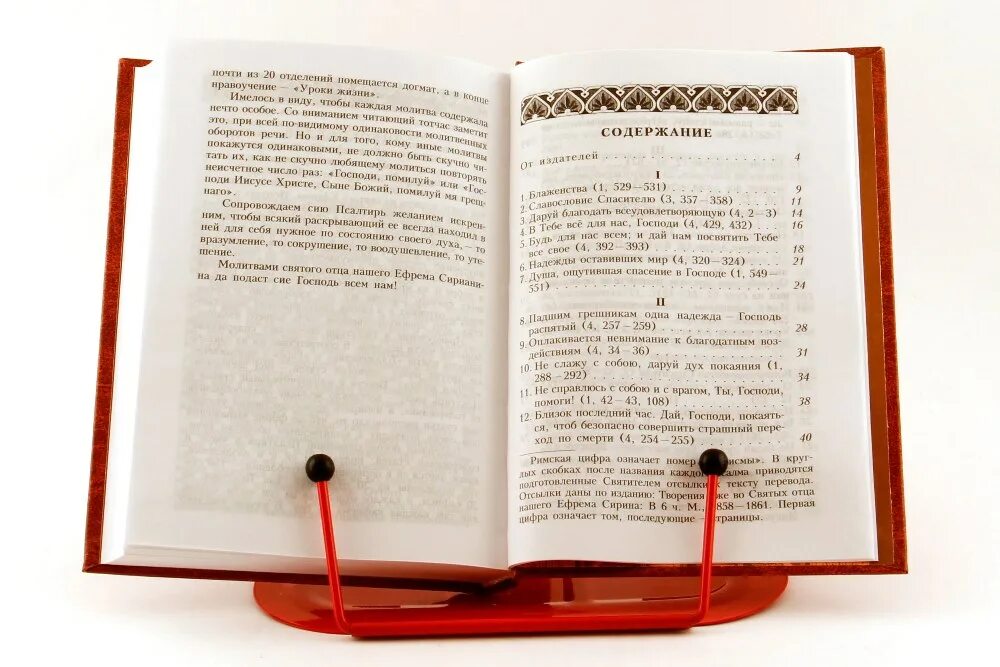 почти из 20 отделений помещается догмат, а в конце
нравоучение — «Уроки жизни».
Имелось в виду, чтобы каждая молитва содержала
нечто особое. Со вниманием читающий тотчас заметит
это, при всей по-видимому одинаковости молитвенных
оборотов речи. Но и для того, кому иные молитвы
покажутся одинаковыми, не должно быть скучно чи-
тать их, как не скучно любящему молиться повторять
неисчетное число раз: «Господи, помилуй» или «Гос-
поди Иисусе Христе, Сыне Божий, помилуй мя греш-
наго».
Сопровождаем сию Псалтирь желанием искрен-
ним, чтобы всякий раскрывающий ее всегда находил в
ней для себя нужное по состоянию своего духа,— то
вразумление, то сокрушение, то воодушевление, то уте-
шение.
Молитвами святого отца нашего Ефрема Сириани-
на да подаст сие Господь всем нам!
СОДЕРЖАНИЕ
От издателей 4
I
1. Блаженства (1, 529—531) 9
2. Славословие Спасителю (3, 357—358) 11
3. Даруй благодать всеудовлетворяющую (4, 2—3) 14
4. В Тебе всё для нас, Господи (4, 429, 432) 16
5. Будь для нас всем; и дай нам посвятить Тебе
все свое (4, 392—393) 18
6. Надежды оставивших мир (4, 320—324) 21
7. Душа, ощутившая спасение в Господе (1, 549—
551) 24
II
8. Падшим грешникам одна надежда — Господь
распятый (4, 257—259) 28
9. Оплакивается невнимание к благодатным воз-
действиям (4, 34—36) 31
10. Не слажу с собою, даруй дух покаяния (1,
288—292) 34
11. Не справлюсь с собою и с врагом, Ты, Господи,
помоги! (1, 42—43, 108) 38
12. Близок последний час. Дай, Господи, покаять-
ся, чтоб безопасно совершить страшный пере-
ход по смерти (4, 254—255) 40
Римская цифра означает номер исмы». В круг-
лых скобках после названия каждо алма приводятся
подготовленные Святителем отсылки к тексту перевода.
Отсылки даны по изданию: Творения же во Святых отца
нашего Ефрема Сирина: В 6 ч. М., 858—1861. Первая
цифра означает том, последующие страницы.